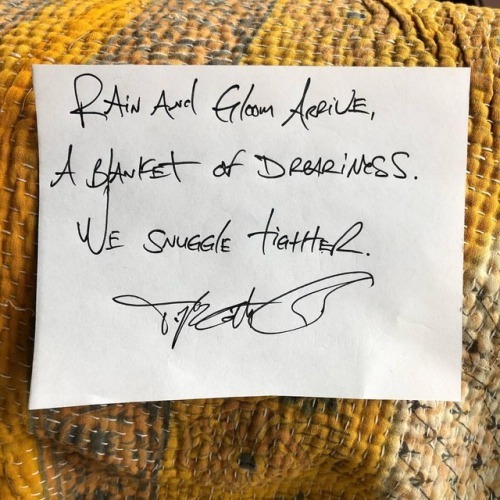 Rain And Gloom Arrive,
A Blanket of Dreariness.
We snuggle tighter.